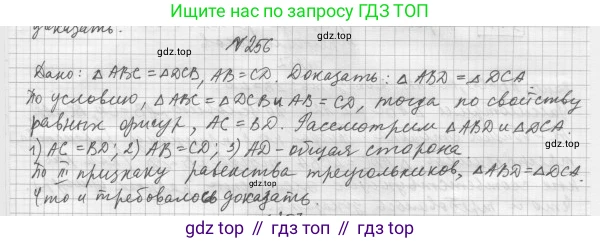 Ищите нас по запросу ГДЗ ТОП
доказать.
gdz.top
№256
Дано: △ABC = △DCB, AB = CD. Доказать: △ABD = △DCA
По условию, △ABC = △DCB и AB = CD, тогда по свойству
равных фигур, AC = BD. Рассмотрим △ABD и △DCA.
1) AC = BD; 2) AB = CD; 3) AD - общая сторона.
По III признаку равенства треугольников, △ABD = △DCA.
Что и требовалось доказать.
gdz.top
gdz.top
gdz.top
gdz.top
gdz.top // gdz.top // gdz.top